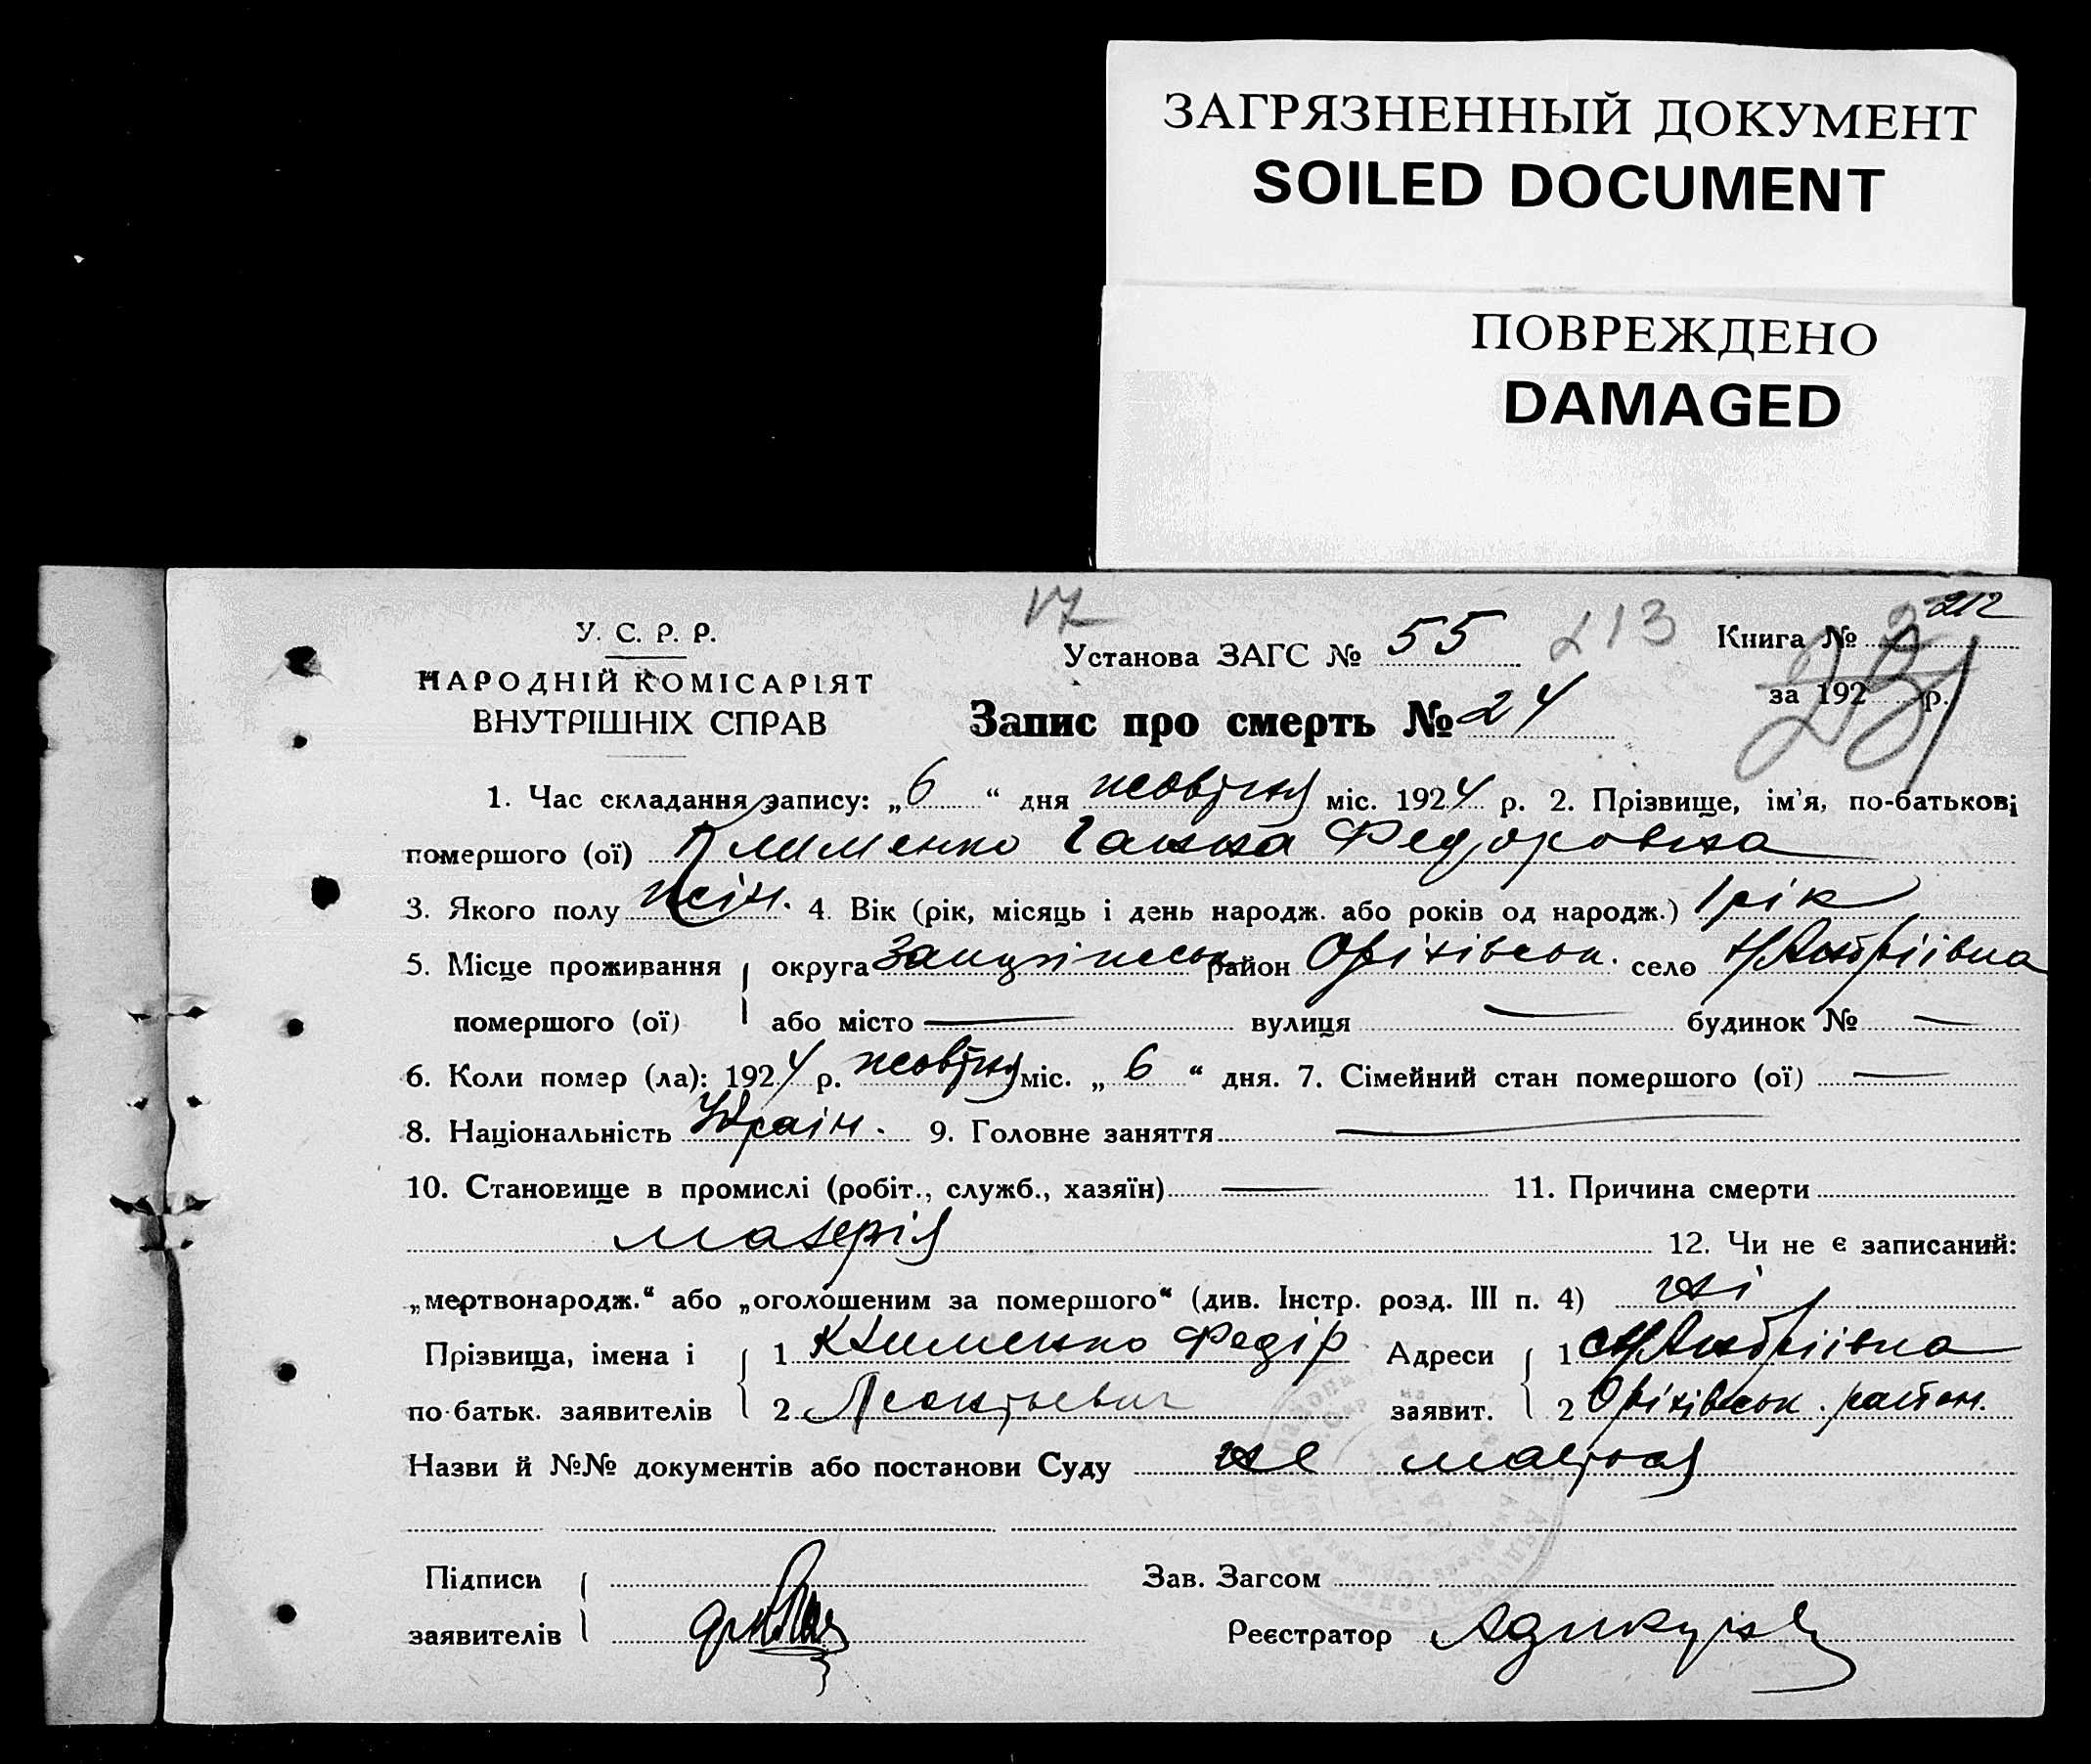 ЗАГРЯЗНЕННЫЙ ДОКУМЕНТ
SOILED DOCUMENT
ПОВРЕЖДЕНО
DAMAGED
17
212
У. С. Р. Р.
Установа ЗАГС № 55 213 Книга №
НАРОДНІЙ КОМІСАРІЯТ
ВНУТРІШНІХ СПРАВ
за 192 р.
Запис про смерть № 24
1. Час складання запису: „6“ дня жовтня міс. 1924 р. 2. Прізвище, ім'я, по-батькові
помершого (ої) Клименко Ганна Федоровна
3. Якого полу жін. 4. Вік (рік, місяць і день народж. або років од народж.) 1 рік
5. Місце проживання округа район Оріхівськ. село Н/Андріівка
помершого (ої) або місто — вулиця — будинок № —
6. Коли помер (ла): 1924 р. жовтня міс. „6“ дня. 7. Сімейний стан помершого (ої) —
8. Національність Украін. 9. Головне заняття —
10. Становище в промислі (робіт., служб., хазяїн) — 11. Причина смерти
малерія 12. Чи не є записаний:
„мертвонародж.“ або „оголошеним за помершого“ (див. Інстр. розд. III п. 4) ні
Прізвища, імена і 1 Клименко Федір Адреси 1 с Н/Андріівка
по-батьк. заявителів 2 Леонтьевич заявит. 2 Оріхівськ. район.
Назви й №№ документів або постанови Суду не мається
Підписи Зав. Загсом
заявителів Реєстратор